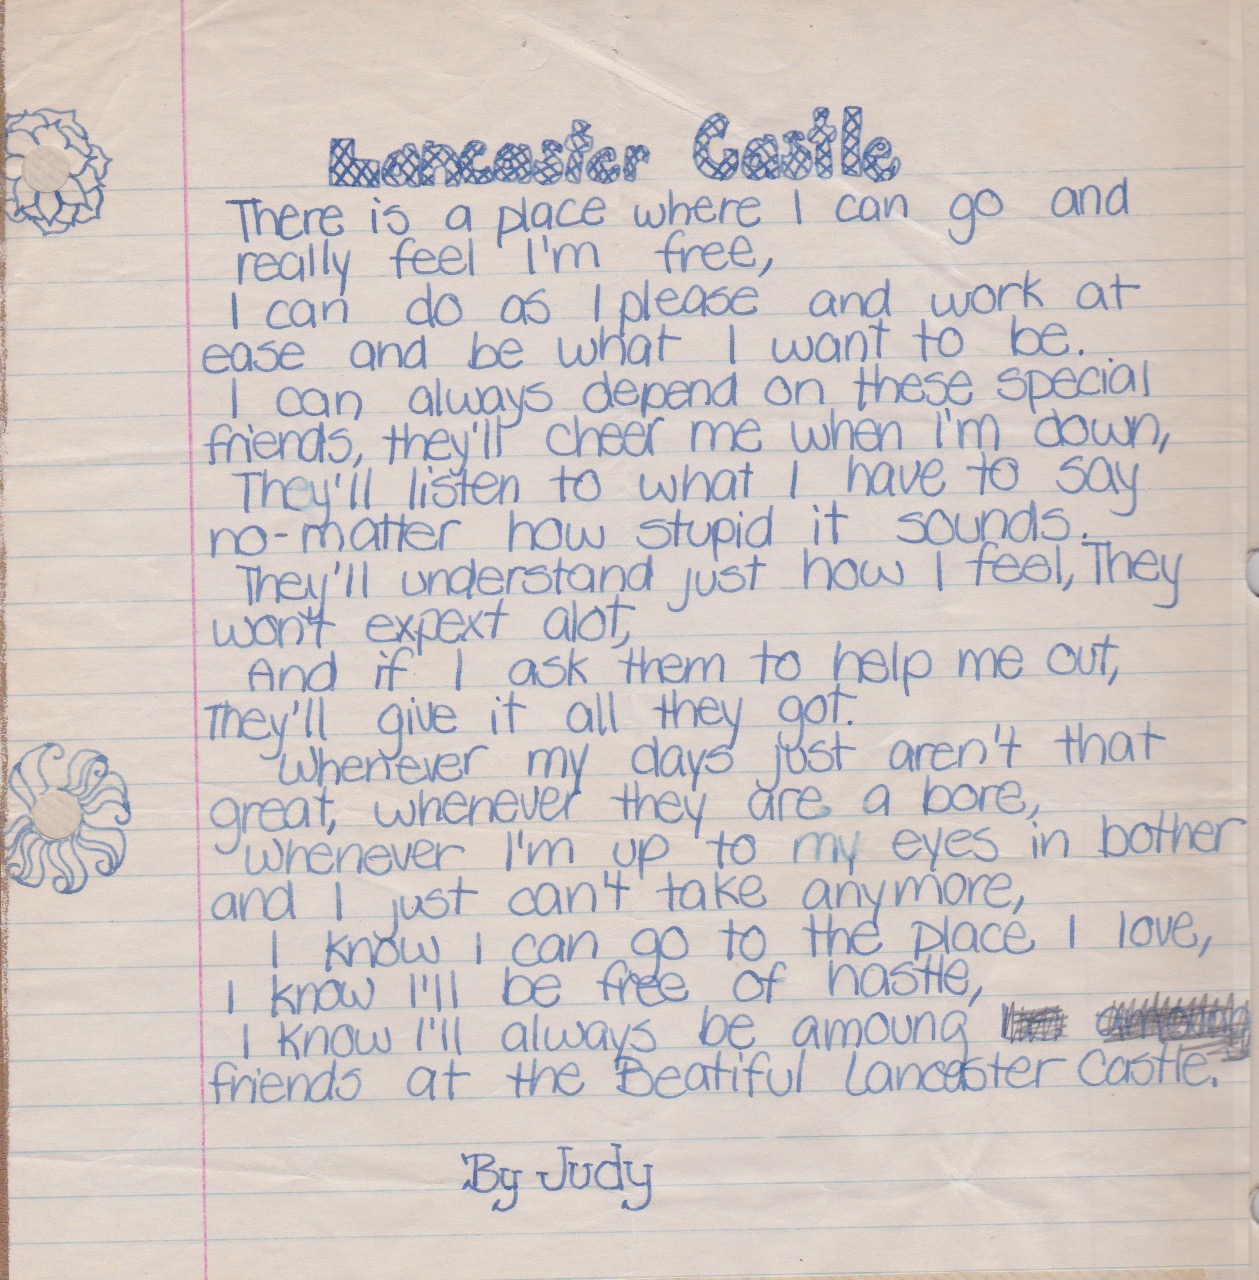 Lancaster Castle
There is a place where I can go and
really feel I'm free,
I can do as I please and work at
ease and be what I want to be.
I can always depend on these special
friends, they'll cheer me when I'm down,
They'll listen to what I have to say
no-matter how stupid it sounds.
They'll understand just how I feel, They
won't expext alot,
And if I ask them to help me out,
They'll give it all they got.
Whenever my days just aren't that
great, whenever they are a bore,
whenever I'm up to my eyes in bother
and I just can't take anymore,
I know I can go to the place I love,
I know I'll be free of hastle,
I know I'll always be amoung
friends at the Beatiful Lancaster Castle.
By Judy